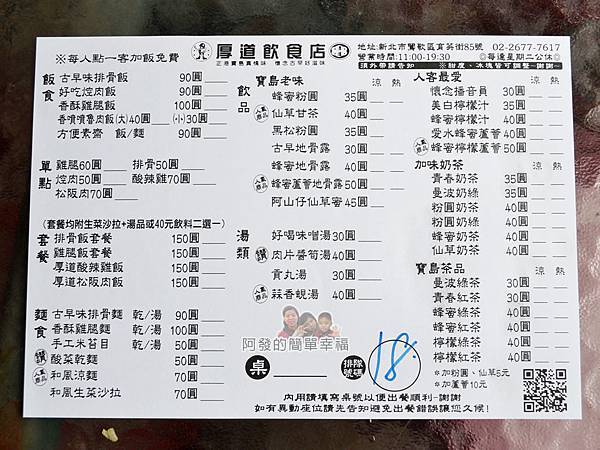 ※每人點一客加飯免費
厚道飲食店
正港寶島真情味 懷念古早好滋味
地址:新北市鶯歌區育英街85號 02-2677-7617
營業時間:11:00-19:30 ◎每逢星期二公休◎
須外帶請告知 ※甜度、冰塊皆可調整~謝謝~
飯食
古早味排骨飯 90圓
好吃焢肉飯 90圓
香酥雞腿飯 100圓
香噴噴魯肉飯(大)40圓 (小)30圓
方便素齋 飯/麵 90圓
單點
雞腿60圓 排骨50圓
焢肉50圓 酸辣雞70圓
松阪肉70圓
(套餐均附生菜沙拉+湯品或40元飲料二選一)
套餐
排骨飯套餐 150圓
雞腿飯套餐 150圓
厚道酸辣雞飯 150圓
厚道松阪肉飯 150圓
麵食
古早味排骨麵 乾/湯 90圓
香酥雞腿麵 乾/湯 100圓
手工米苔目 乾/湯 50圓
讚 酸菜乾麵 50圓
人氣商品 和風涼麵 70圓
和風生菜沙拉 70圓
飲品
寶島老味 涼 熱
蜂蜜粉圓 35圓
人氣商品 仙草甘茶 40圓
黑松粉圓 35圓
古早地骨露 30圓
蜂蜜地骨露 40圓
人氣商品 蜂蜜蘆薈地骨露50圓
阿山仔仙草蜜 45圓
湯類
好喝味噌湯30圓
讚 肉片醬筍湯40圓
貢丸湯 30圓
人氣商品 蒜香蜆湯 40圓
人客最愛 涼 熱
懷念播音員 30圓
美白檸檬汁 35圓
蜂蜜檸檬汁 40圓
愛水蜂蜜蘆薈40圓
人氣商品 蜂蜜檸檬蘆薈50圓
加味奶茶 涼 熱
青春奶茶 35圓
曼波奶綠 35圓
粉圓奶茶 40圓
粉圓奶綠 40圓
蜂蜜奶茶 40圓
仙草奶茶 40圓
寶島茶品 涼 熱
曼波綠茶 30圓
青春紅茶 30圓
蜂蜜綠茶 40圓
蜂蜜紅茶 40圓
檸檬綠茶 40圓
檸檬紅茶 40圓
＊加粉圓、仙草5元
＊加蘆薈10元
阿發的簡單幸福
桌
排隊號碼 18.
內用請填寫桌號以便出餐順利~謝謝
如有異動座位請先告知避免出餐錯誤讓您久候!